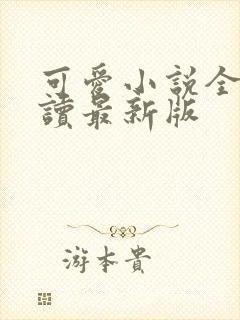 可爱小説全
讀最新版
游本貴